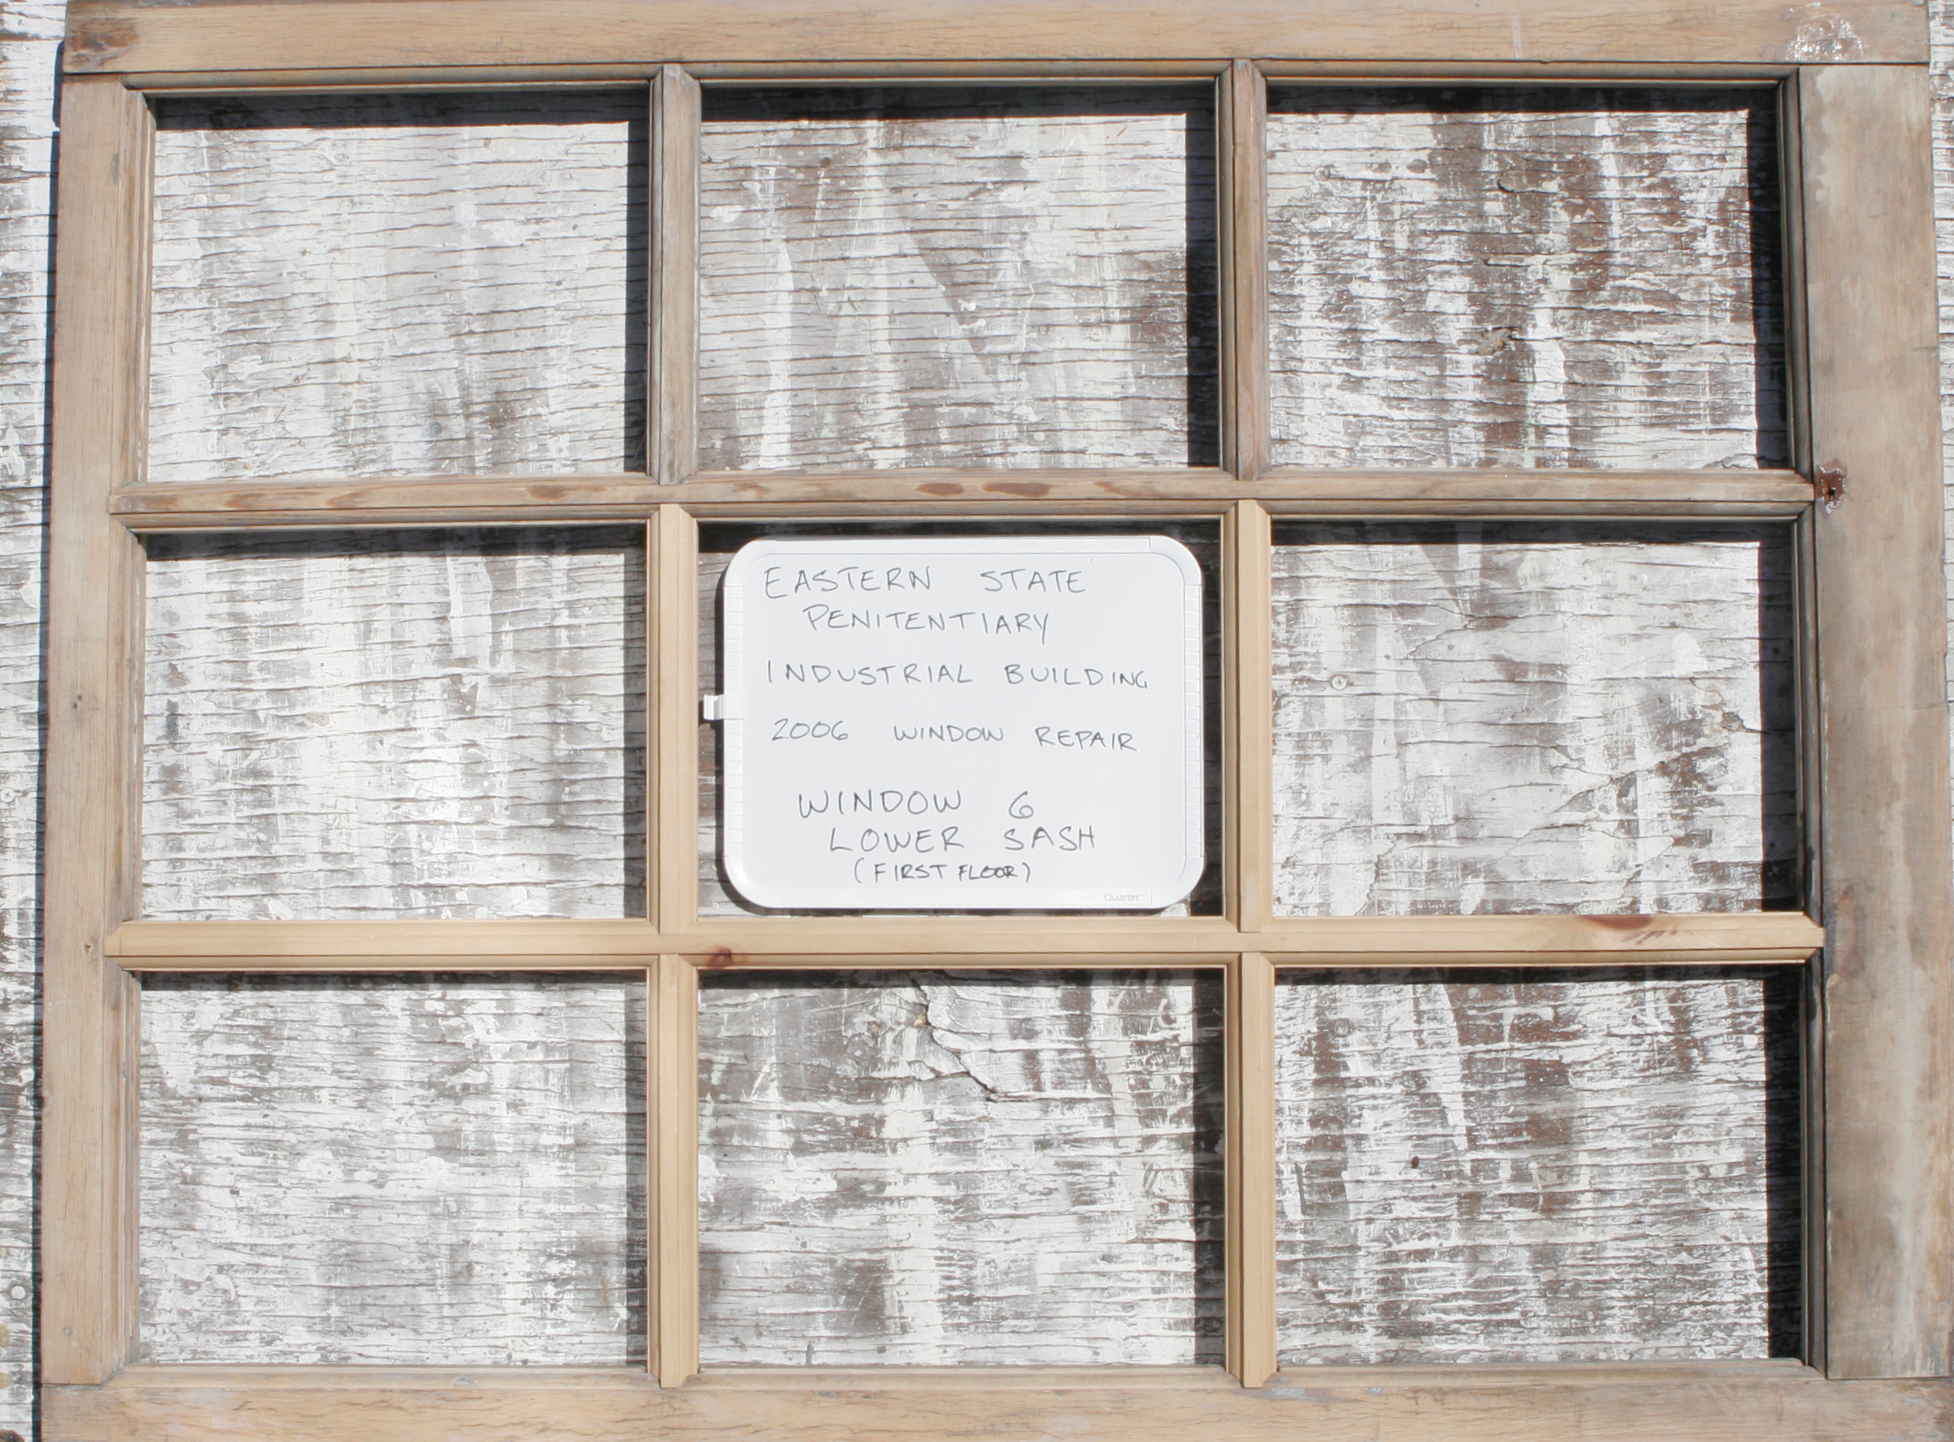 EASTERN STATE
PENITENTIARY
INDUSTRIAL BUILDING
2006 WINDOW REPAIR
WINDOW 6
LOWER SASH
(FIRST FLOOR)
Quartet